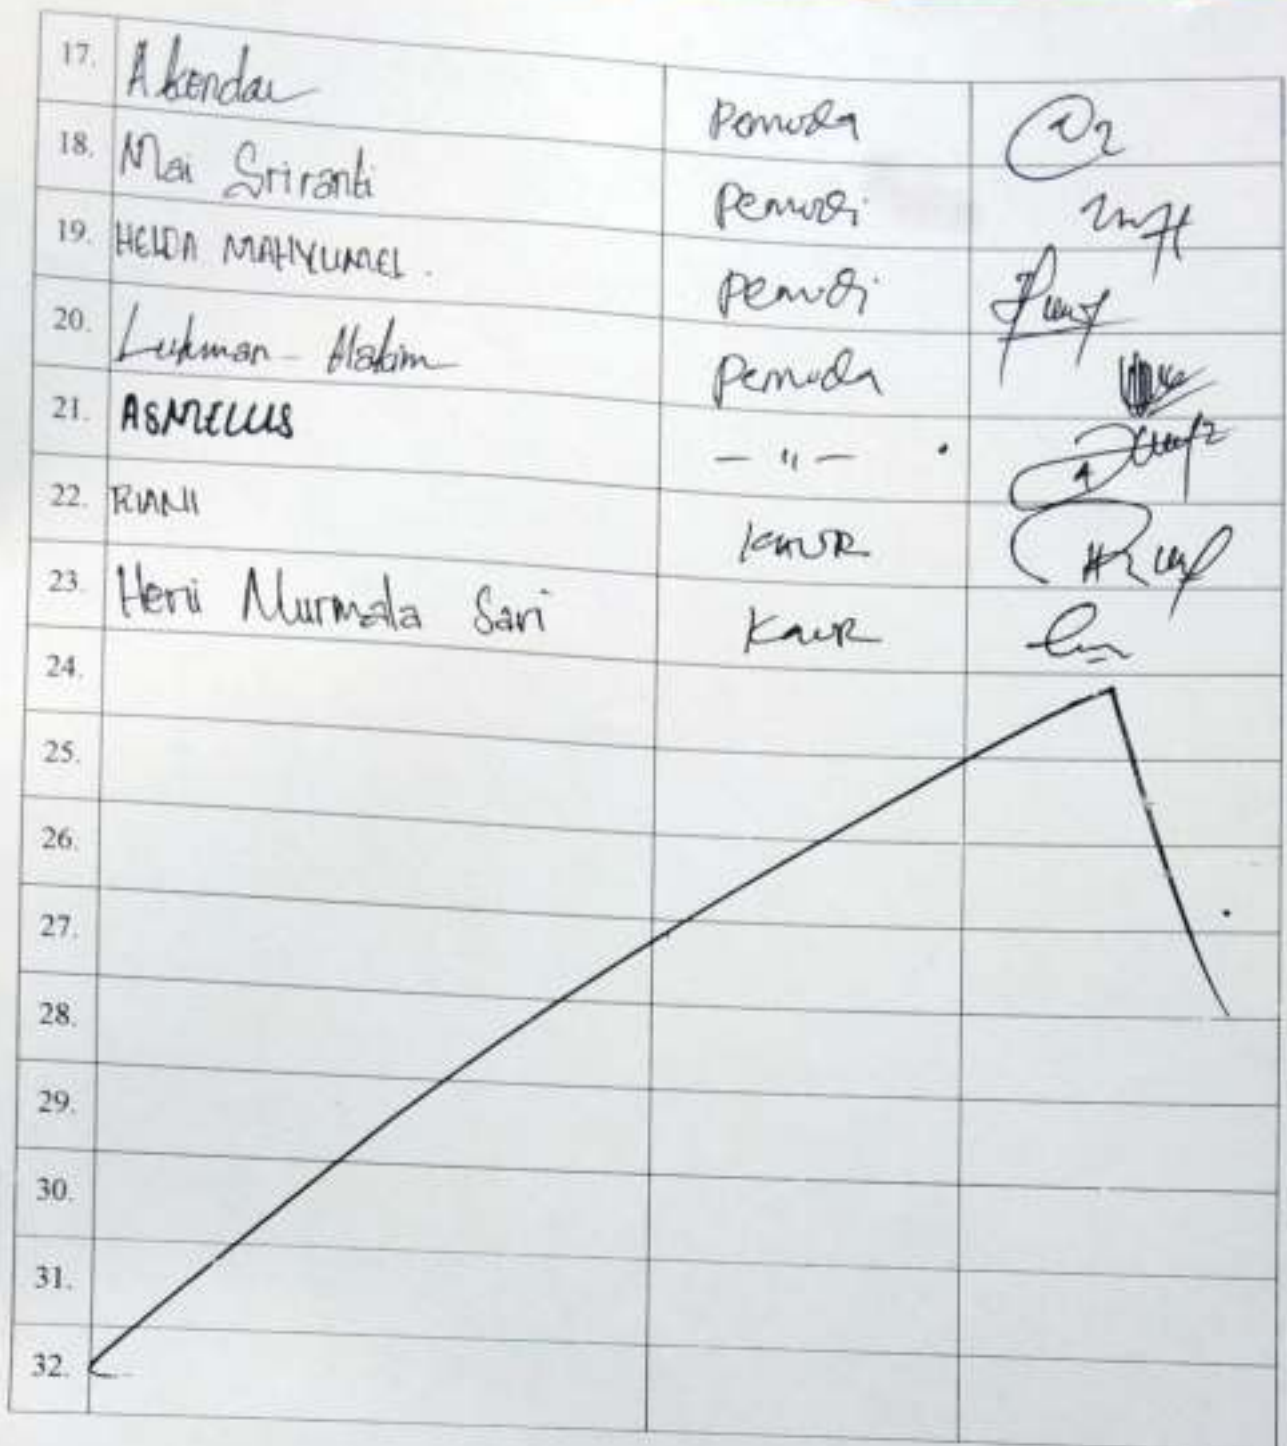 17. Akendar Pemuda
18. Mai Sriranti Pemudi
19. HELDA MAHYUMEL. Pemudi
20. Lukman Hakim Pemuda
21. ASMELLUS — " —
22. RIANI KAUR
23. Herii Nurmala Sari KauR
24.
25.
26.
27.
28.
29.
30.
31.
32.